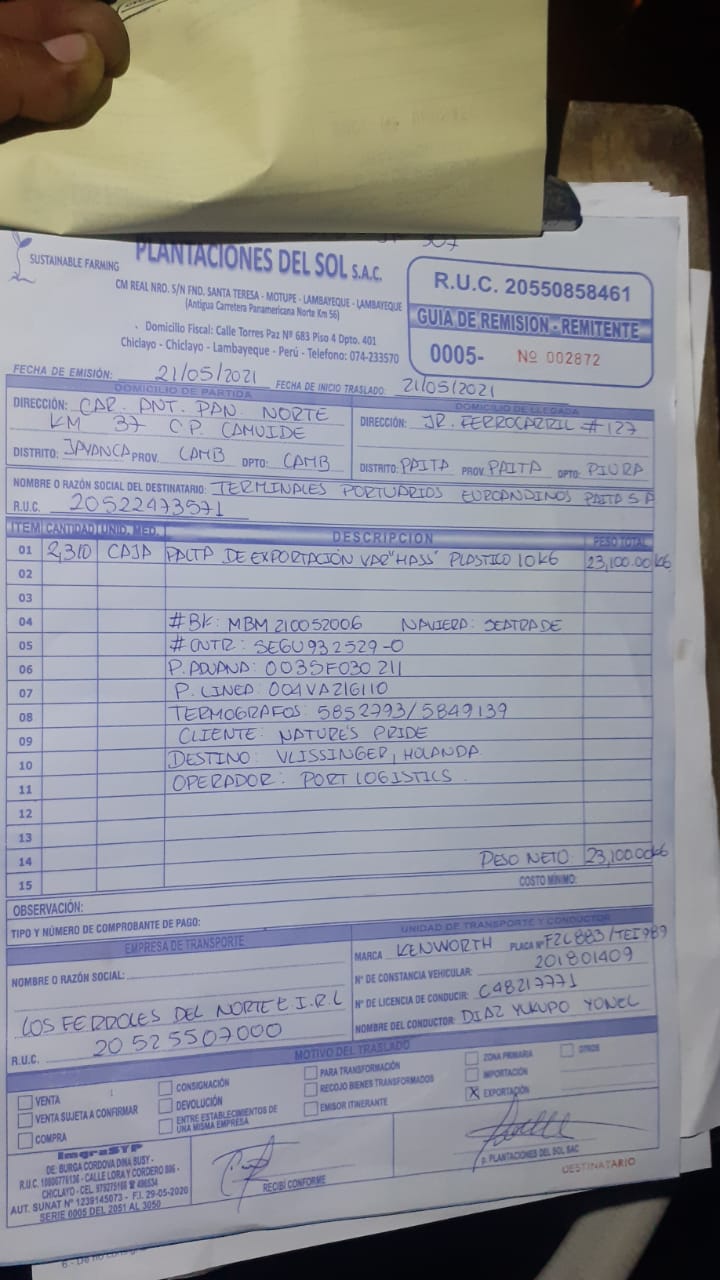 SUSTAINABLE FARMING
PLANTACIONES DEL SOL S.A.C.
CM REAL NRO. S/N FND. SANTA TERESA - MOTUPE - LAMBAYEQUE - LAMBAYEQUE
(Antigua Carretera Panamericana Norte Km 56)
Domicilio Fiscal: Calle Torres Paz Nº 683 Piso 4 Dpto. 401
Chiclayo - Chiclayo - Lambayeque - Perú - Telefono: 074-233570
R.U.C. 20550858461
GUIA DE REMISION - REMITENTE
0005- Nº 002872
FECHA DE EMISIÓN: 21/05/2021 FECHA DE INICIO TRASLADO: 21/05/2021
DOMICILIO DE PARTIDA
DIRECCIÓN: CAR. ANT. PAN. NORTE
KM 37 C.P. CAMUIDE
DISTRITO: JAYANCA PROV. LAMB DPTO: LAMB
DOMICILIO DE LLEGADA
DIRECCIÓN: JR. FERROCARRIL #127
DISTRITO: PAITA PROV. PAITA DPTO: PIURA
NOMBRE O RAZÓN SOCIAL DEL DESTINATARIO: TERMINALES PORTUARIOS EUROANDINOS PAITA S A
R.U.C. 20522473571
ITEM CANTIDAD UNID. MED. DESCRIPCION PESO TOTAL
01 2,310 CAJA PALTA DE EXPORTACIÓN VAR "HASS" PLASTICO 10KG 23,100.00 KG
02
03
04 #BK: MBM210052006 NAVIERA: SEATRADE
05 # CNTR: SEGU932529-0
06 P. ADUANA: 0035F030211
07 P. LINEA: 004VA216110
08 TERMOGRAFOS: 5852793/5849139
09 CLIENTE: NATURE'S PRIDE
10 DESTINO: VLISSINGER, HOLANDA
11 OPERADOR: PORT LOGISTICS
12
13
14 PESO NETO 23,100.00KG
15 COSTO MÍNIMO:
OBSERVACIÓN:
TIPO Y NÚMERO DE COMPROBANTE DE PAGO:
EMPRESA DE TRANSPORTE
NOMBRE O RAZÓN SOCIAL:
LOS FERROLES DEL NORTE E.I.R.L
R.U.C. 20525507000
UNIDAD DE TRANSPORTE Y CONDUCTOR
MARCA KENWORTH PLACA Nº F2L883/TEI989
Nº DE CONSTANCIA VEHICULAR: 201801409
Nº DE LICENCIA DE CONDUCIR: C48217771
NOMBRE DEL CONDUCTOR: DIAZ YUKUPO YONEL
MOTIVO DEL TRASLADO
VENTA
VENTA SUJETA A CONFIRMAR
COMPRA
CONSIGNACIÓN
DEVOLUCIÓN
ENTRE ESTABLECIMIENTOS DE
UNA MISMA EMPRESA
PARA TRANSFORMACIÓN
RECOJO BIENES TRANSFORMADOS
EMISOR ITINERANTE
ZONA PRIMARIA
IMPORTACIÓN
X EXPORTACIÓN
OTROS
ImgraSYP
DE: BURGA CORDOVA DINA BUSY -
CALLE LORA Y CORDERO
AUT. SUNAT Nº 1239145073 - F.I. 29-05-2020
SERIE 0005 DEL 2051 AL 3050
RECIBÍ CONFORME
p. PLANTACIONES DEL SOL SAC
DESTINATARIO